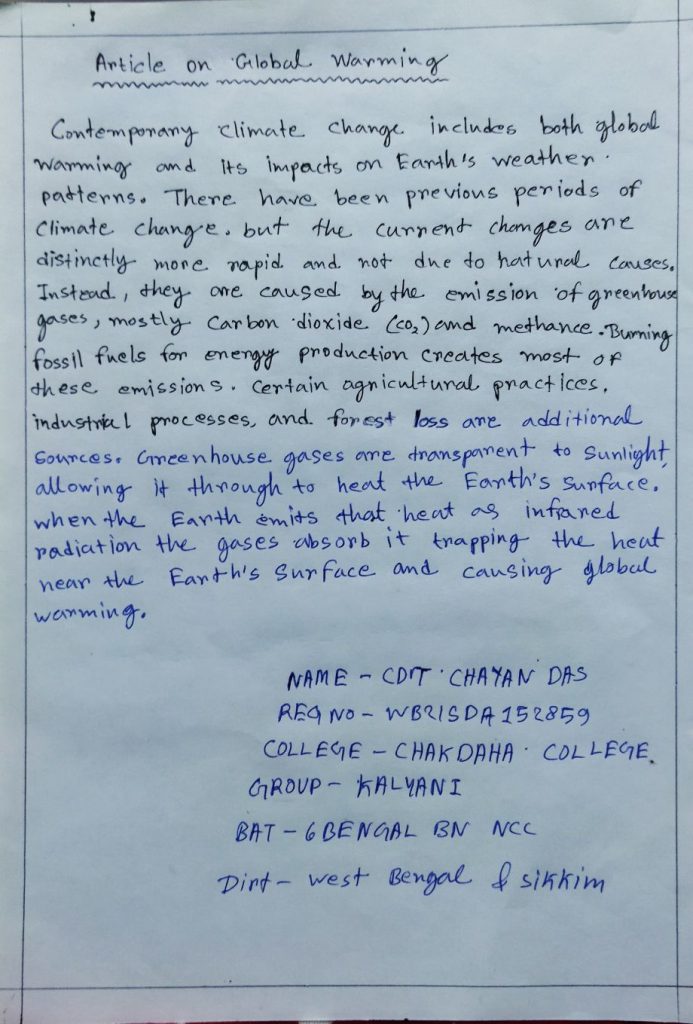 Article on Global Warming
Contemporary climate change includes both global
warming and its impacts on Earth's weather.
patterns. There have been previous periods of
Climate change. but the current changes are
distinctly more rapid and not due to natural causes.
Instead, they are caused by the emission of greenhouse
gases, mostly Carbon dioxide (CO₂) and methance. Burning
fossil fuels for energy production creates most of
these emissions. Certain agricultural practices,
industrial processes, and forest loss are additional
Sources. Greenhouse gases are transparent to sunlight,
allowing it through to heat the Earth's surface.
when the Earth emits that heat as infrared
radiation the gases absorb it trapping the heat
near the Earth's Surface and causing global
warming.
NAME - CDT CHAYAN DAS
REG NO - WB21SDA152859
COLLEGE - CHAKDAHA COLLEGE.
GROUP - KALYANI
BAT - 6 BENGAL BN NCC
Dirt - West Bengal & Sikkim